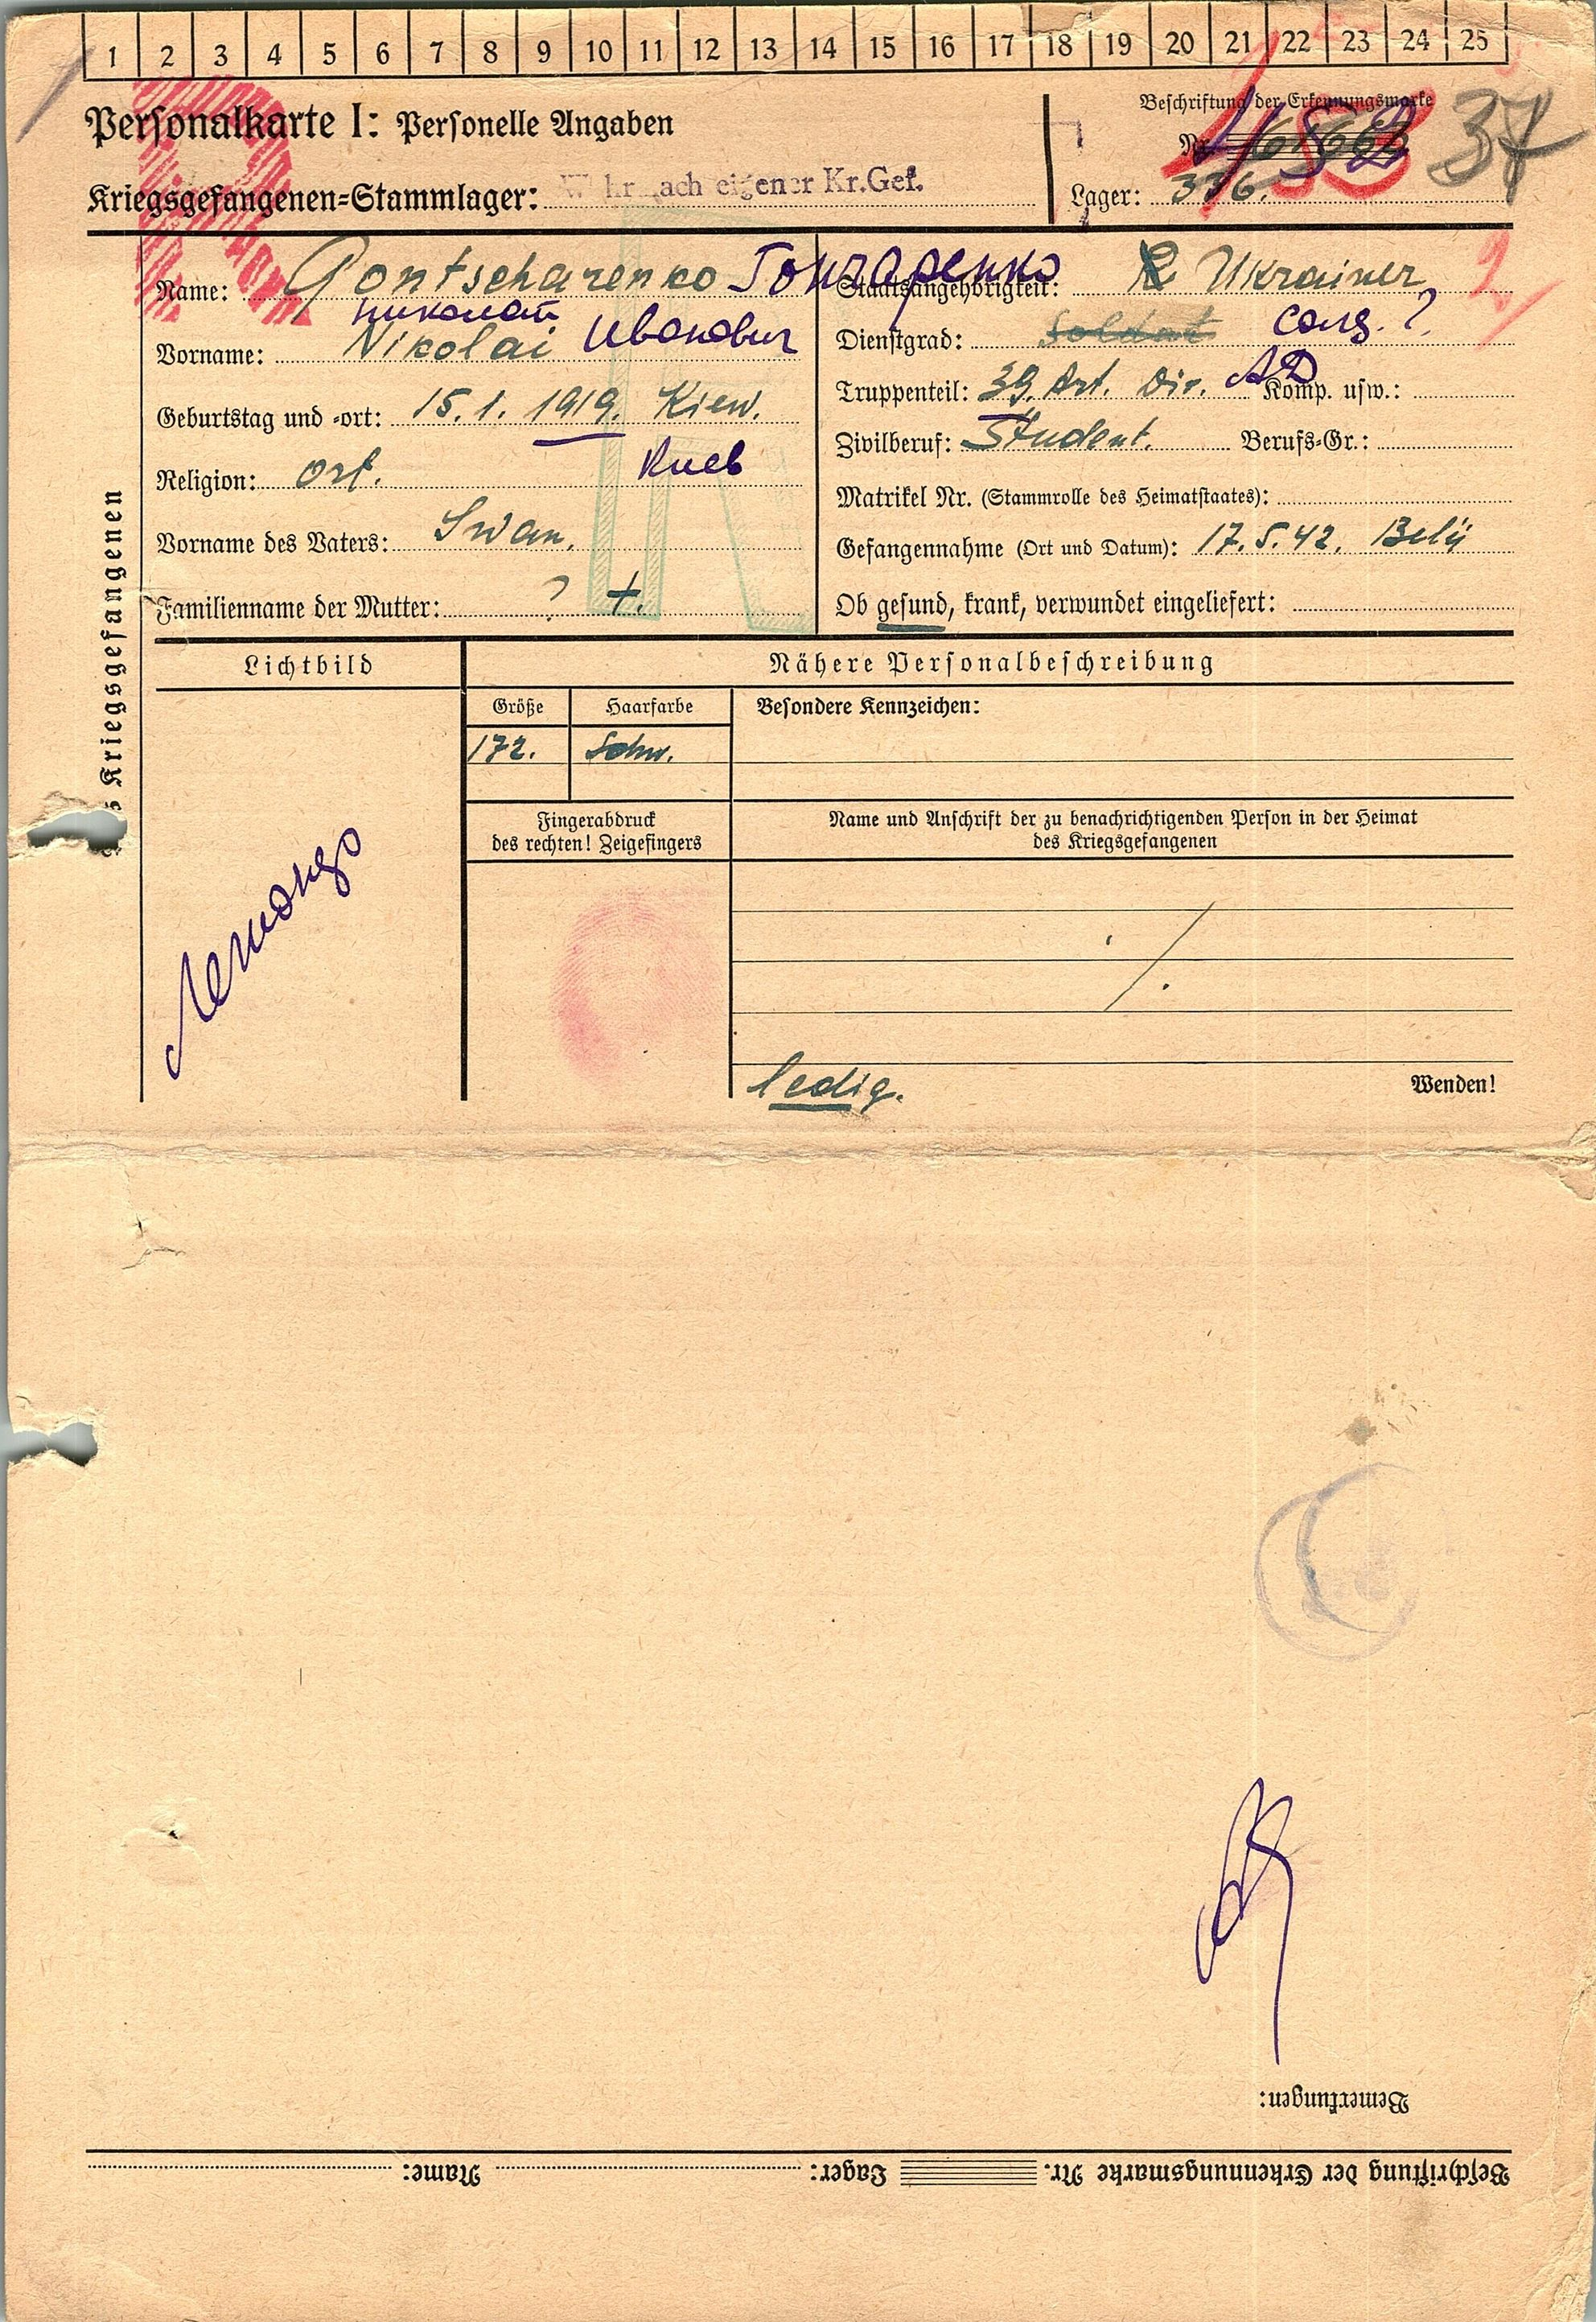 1 2 3 4 5 6 7 8 9 10 11 12 13 14 15 16 17 18 19 20 21 22 23 24 25
Personalkarte I: Personelle Angaben
Beschriftung der Erkennungsmarke
Nr.
37
Kriegsgefangenen-Stammlager: eigener Kr.Gef.
Lager: 336.
Name: Gontscharenko Гончаренко
Николай
Vorname: Nikolai Иванович
Geburtstag und -ort: 15. 1. 1919. Kiew.
Киев
Religion: Ort.
Vorname des Vaters: Iwan.
Familienname der Mutter: ? +.
Staatsangehörigkeit: Ukrainer
Dienstgrad: Soldat солд. ?
Truppenteil: 39. Art. Div. АД Komp. usw.:
Zivilberuf: Student. Berufs-Gr.:
Matrikel Nr. (Stammrolle des Heimatstaates):
Gefangennahme (Ort und Datum): 17. 5. 42. Belij
Ob gesund, krank, verwundet eingeliefert:
Kriegsgefangenen
Lichtbild
Nähere Personalbeschreibung
Größe
Haarfarbe
Besondere Kennzeichen:
172.
Schw.
Fingerabdruck
des rechten! Zeigefingers
Name und Anschrift der zu benachrichtigenden Person in der Heimat
des Kriegsgefangenen
ledig.
Wenden!
Bemerkungen:
Beschriftung der Erkennungsmarke Nr. Lager: Name: